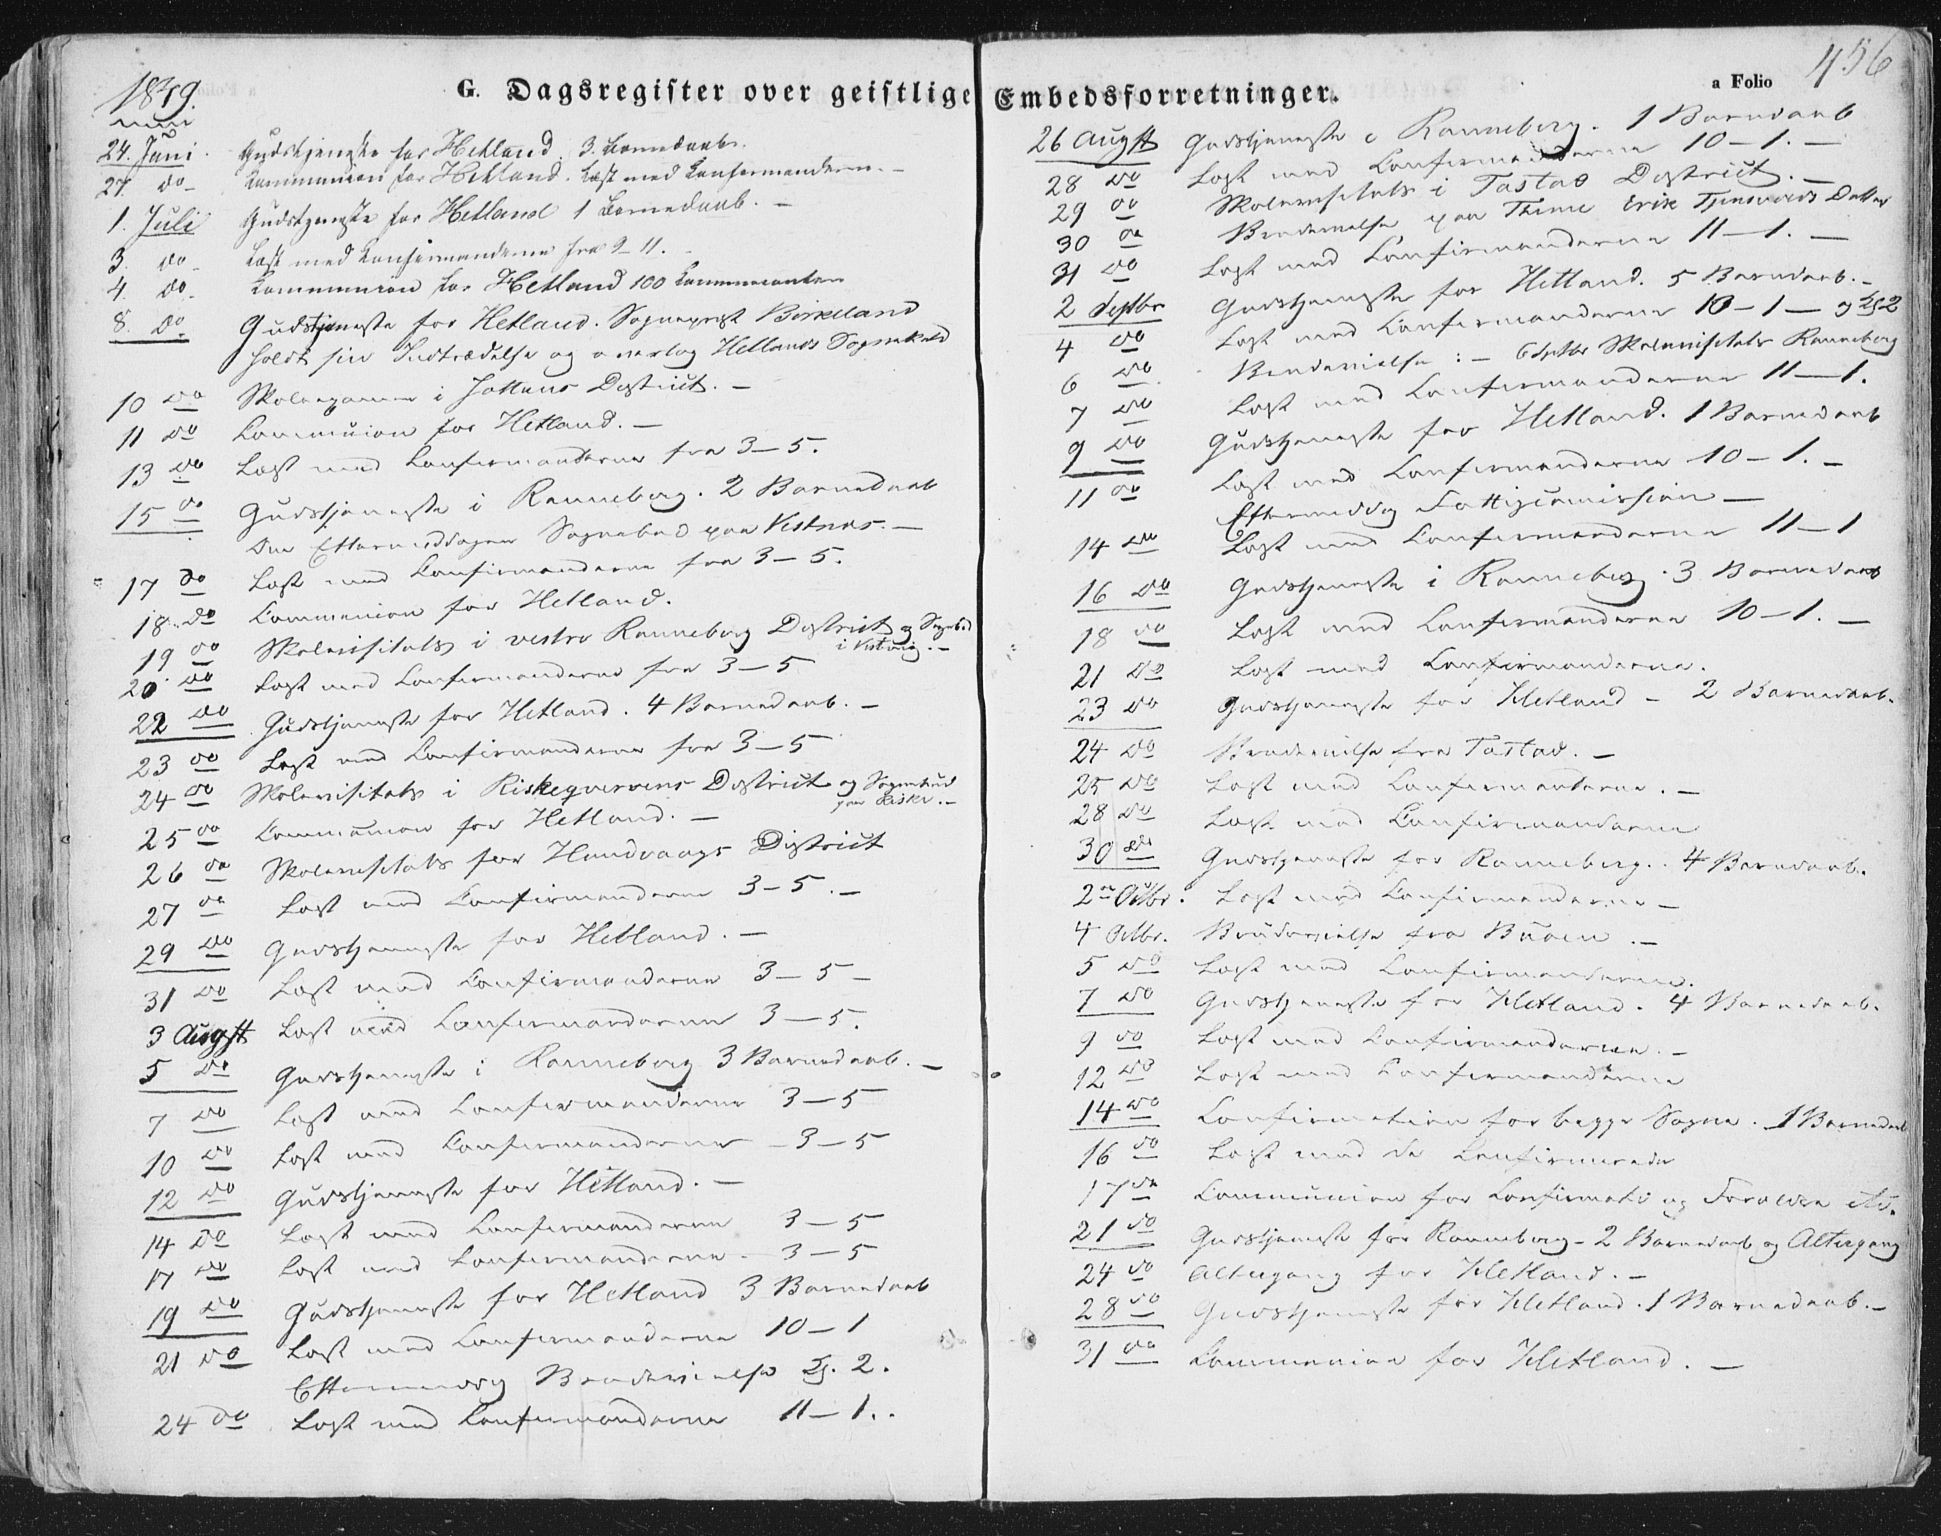 1849.
G. Dagsregister over geistlige Embedsforretninger.
a Folio 456
24. Juni. Gudstjeneste for Hetland. 3 Barnedaab.
27. do Kommunion for Hetland. Læst med Konfirmanderne. -
1. Juli Gudstjeneste for Hetland 1 Barnedaab. -
3. do Læst med Konfirmanderne fra 9-11. -
4. do Kommunion for Hetland 100 Kommunicanter
8. do Gudstjeneste for Hetland. Sogneprest Birkeland
holdt sin Indtrædelse og overtog Hetlands Sognekald
10 do Skoleexamen i Jottens District. -
11 do Communion for Hetland. -
13 do Læst med Confirmanderne fra 3-5.
15 do Gudstjeneste i Ranneberg. 2 Barnedaab
Om Eftermiddagen Sognebud paa Vestnes. -
17 do Læst med Confirmanderne fra 3-5.
18 do Communion for Hetland.
19 do Skolevisitats i vestre Ranneberg District og Sognebud
i Vistvig. -
20 do Læst med Confirmanderne fra 3-5
22 do Gudstjeneste for Hetland. 4 Barnedaab. -
23 do Læst med Confirmanderne fra 3-5
24 do Skolevisitats i Riskeqvervens District og Sognebud
paa Riske. -
25 do Communion for Hetland. -
26 do Skolevisitats for Hundvaags District
27 do Læst med Confirmanderne 3-5. -
29 do Gudstjeneste for Hetland. -
31 do Læst med Confirmanderne 3-5 -
3 Augst Læst med Confirmanderne 3-5.
5 do Gudstjeneste i Ranneberg 3 Barnedaab. -
7 do Læst med Confirmanderne 3-5
10 do Læst med Confirmanderne - 3-5
12 do Gudstjeneste for Hetland. -
14 do Læst med Confirmanderne 3-5
17 do Læst med Confirmanderne - 3-5
19 do Gudstjeneste for Hetland 3 Barnedaab
21 do Læst med Confirmanderne 10-1
Eftermiddag Brudevielse 2.
24 do Læst med Confirmanderne 11-1.
26 Augst Gudstjeneste i Ranneberg. 1 Barnedaab
28 do Læst med Confirmanderne 10-1. -
29 do Skolevisitats i Tastad District. -
30 do Brudevielse paa Erik Datter
31 do Læst med Confirmanderne 11-1. -
2 Septbr Gudstjeneste for Hetland. 5 Barnedaab. -
4 do Læst med Confirmanderne 10-1 -
6 do Brudevielse : - 6 Septbr Skolevisitats Ranneberg
7 do Læst med Confirmanderne 11-1.
9 do Gudstjeneste for Hetland. 1 Barnedaab
11 do Læst med Confirmanderne 10-1. -
Eftermiddag Fattigcomission -
14 do Læst med Confirmanderne 11-1
16 do Gudstjeneste i Ranneberg. 3 Barnedaab
18 do Læst med Confirmanderne 10-1. -
21 do Læst med Confirmanderne.
23 do Gudstjeneste for Hetland - 2 Barnedaab.
24 do Brudevielse fra Tastad. -
25 do Læst med Confirmanderne. -
28 do Læst med Confirmanderne
30 do Gudstjeneste for Ranneberg. 4 Barnedaab.
2 Octbr. Læst med Confirmanderne -
4 Octbr. Brudevielse fra Buøen. -
5 do Læst med Confirmanderne.
7 do Gudstjeneste for Hetland. 4 Barnedaab.
9 do Læst med Confirmanderne. -
12 do Læst med Confirmanderne
14 do Confirmation for begge Sogne. 1 Barnedaab
16 do Læst med de Confirmerede
17 do Communion for Confirmati og Forældre etc.
21 do Gudstjeneste for Ranneberg - 2 Barnedaab og Altergang
24 do Altergang for Hetland. -
28 do Gudstjeneste for Hetland. 1 Barnedaab. -
31 do Communion for Hetland. -